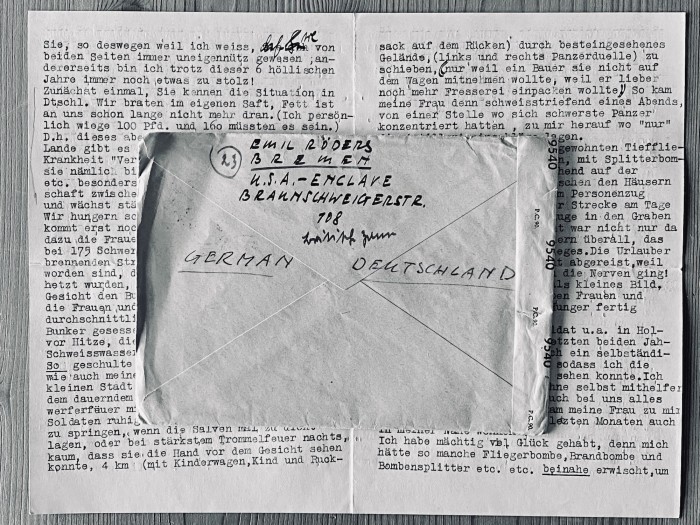 Sie, so deswegen weil ich weiss, von
beiden Seiten immer uneigennütz gewesen ;an-
dererseits bin ich trotz dieser 6 höllischen
Jahre immer noch etwas zu stolz!
Zunächst einmal, Sie kennen die Situation in
Dtschl. Wir braten im eigenen Saft, Fett ist
an uns schon lange nicht mehr dran.(Ich persön-
lich wiege 100 Pfd. und 160 müssten es sein.)
D.h. dieses ab
Lande gibt es
Krankheit "Ver
sie nämlich bi
etc. besonders
schaft zwische
und wächst stä
Wir hungern sc
kommt erst noc
dazu die Fraue
bei 175 Schwer
brennenden Str
worden sind, d
hetzt wurden,
Gesicht den Bu
die Frauen und
durchschnittli
Bunker gesesse
vor Hitze, die
Schweisswasser
So geschulte
wie auch meine
kleinen Stadt
dem dauerndem
werferfäuer mi
Soldaten ruhig
zu springen, wenn die Salven mal zu dicht
lagen, oder bei stärkstem Trommelfeuer nachts,
kaum, dass sie die Hand vor dem Gesicht sehen
konnte, 4 km (mit Kinderwagen,Kind und Ruck-
sack auf dem Rücken) durch besteingesehenes
Gelände,(links und rechts Panzerduelle) zu
schieben,(nur weil ein Bauer sie nicht auf
dem Wagen mitnehmen wollte, weil er lieber
noch mehr Fresserei einpacken wollte!) So kam
meine Frau denn schweisstriefend eines Abends,
von einer Stelle wo sich schwerste Panzer
konzentriert hatten , zu mir herauf wo "nur"
legen.
gewohnten Tiefflie-
n, mit Splitterbom-
hend auf der
schen den Häusern
m Personenzug
r Strecke am Tage
uge in den Graben
t war nicht nur da
rn überall, das
eges.Die Urlauber
t abgereist,weil
die Nerven ging!
ls kleines Bild,
en Frauen und
unger fertig
dat u.a. in Hol-
tzten beiden Jah-
h ein selbständi-
sodass ich die
sehen konnte.Ich
hne selbst mithelfen
uch bei uns alles
am meine Frau zu mir
etzten Monaten auch
in meiner Nähe
Ich habe mächtig viel Glück gehabt, denn mich
hätte so manche Fliegerbombe,Brandbombe und
Bombensplitter etc. etc. beinahe erwischt,um
23
EMIL RÖDERS
BREMEN
U.S.A.-ENCLAVE
BRAUNSCHWEIGERSTR.
108
GERMAN DEUTSCHLAND
9540
P.C. 90
9540
P.C. 90
9540
P.C. 90